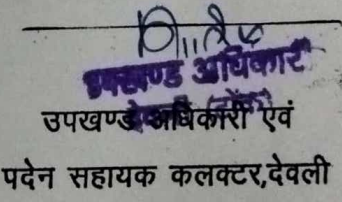 उपखण्ड अधिकारी
देवली (टोंक)
उपखण्ड अधिकारी एवं
पदेन सहायक कलक्टर,देवली